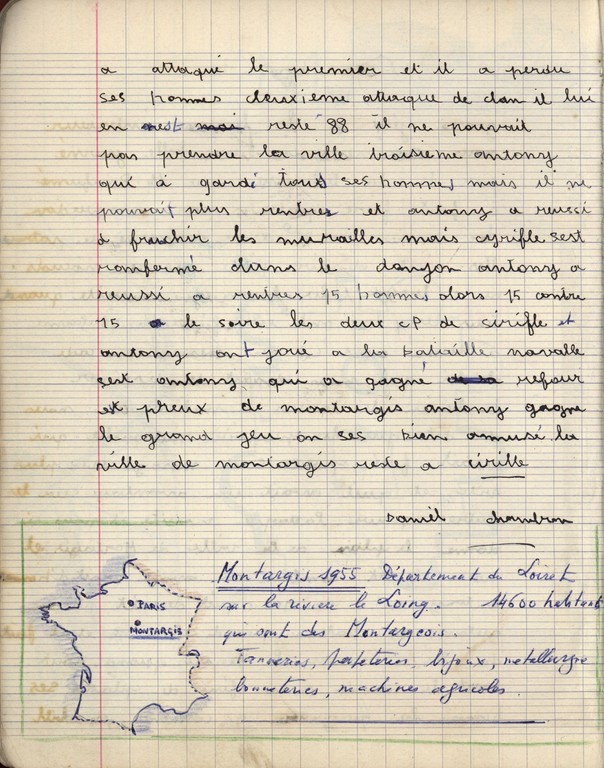 a attaqué le premier et il a perdu
ses hommes deuxieme attaque de clan il lui
en reste 88 il ne pouvait
pas prendre la ville troisieme antony
qui à gardé tous ses hommes mais il ne
pouvait plus rentres et antony a reussi
a franchir les murailles mais cyrifle sest
romfermé dans le donjon antony a
reussi a rentres 15 hommes alors 15 contre
15 le soire les deux CP de cirifle et
antony ont joué a la bataille navalle
sest antony qui a gagné refour
et preux de montargis antony gagne
le grand jeu on ses bien amusé la
ville de montargis reste a cirille
Daniel chandron
PARIS
MONTARGIS
Montargis 1955 Département du Loiret
sur la riviere le Loing. 14600 habitants
qui sont des Montargeois.
Tanneries, papeteries, bijoux, metallurgie
bonneteries, machines agricoles.